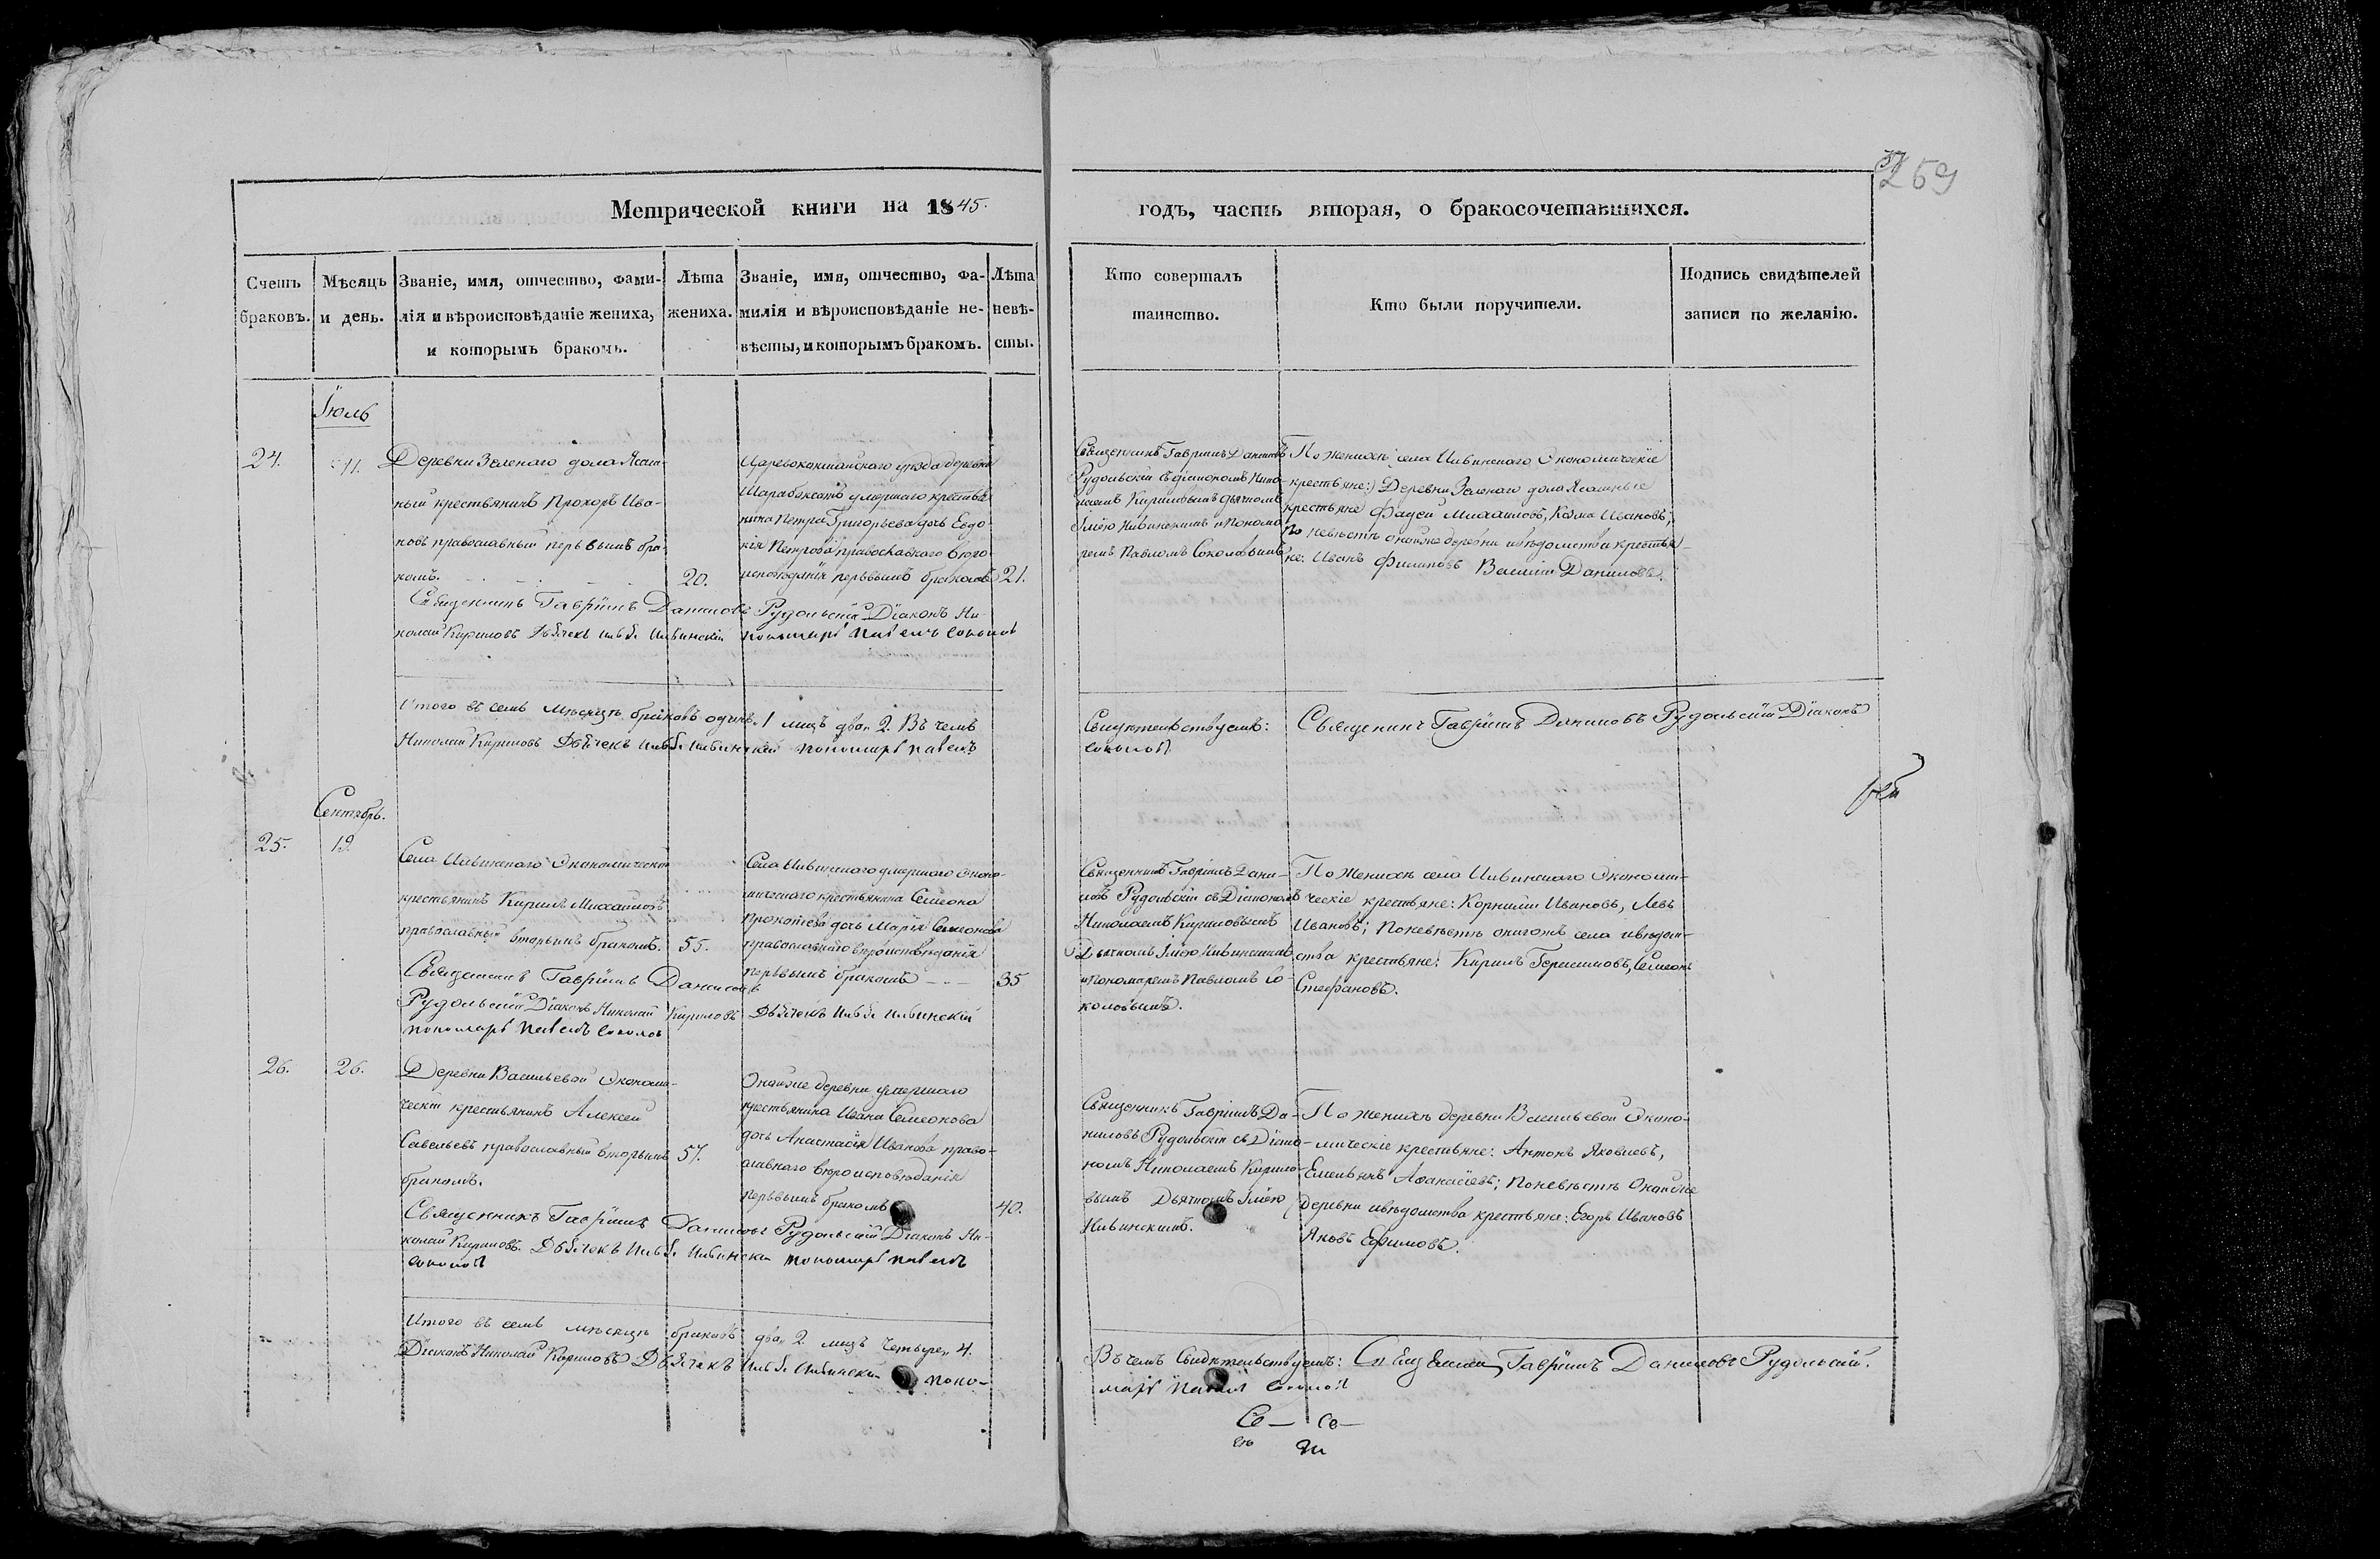 269
Метрической книги на 1845.
годъ, часть вторая, о бракосочетавшихся.
Счетъ браковъ.
Мѣсяцъ и день.
Званіе, имя, отчество, фами-
лія и вѣроисповѣданіе жениха,
и которымъ бракомъ.
Лѣта жениха.
Званіе, имя, отчество, фа-
милія и вѣроисповѣданіе не-
вѣсты, и которымъ бракомъ.
Лѣта невѣ-
сты.
Кто совершалъ
таинство.
Кто были поручители.
Подпись свидѣтелей
записи по желанію.
Іюль
24.
11.
Деревни Зеленаго дола Ясаш-
ный крестьянинъ Прохоръ Ива-
новъ православный первымъ бра-
комъ.
20.
Царевококшайскаго уѣзда деревни
умершаго крестья-
нина Петра Григорьева дочь Евдо-
кія Петрова православнаго вѣро-
исповѣданія первымъ бракомъ
21.
Священникъ Гавріилъ Даниловъ
Рудольскій съ діакономъ Нико-
лаемъ Кириловымъ дьячкомъ
Ильею Ильинскимъ и Понома-
ремъ Павломъ Соколовымъ
По женихѣ села Ильинскаго Экономическіе
крестьяне:) Деревни Зеленаго дола Ясашные
крестьяне Фадей Михайловъ, Козма Ивановъ;
по невѣстѣ онойже деревни и вѣдомства крестья-
не: Иванъ Филиповъ Василій Даниловъ.
Священникъ Гавріилъ Даниловъ Рудольскій Діаконъ Ни-
колай Кириловъ Дьячекъ Илья Ильинскій пономарь Павелъ Соколовъ
Итого въ семъ мѣсяцѣ браковъ одинъ. 1 лицъ два 2. Въ чемъ
Свидѣтельствуемъ: Священникъ Гавріилъ Даниловъ Рудольскій Діаконъ
Николай Кириловъ Дьячекъ Илья Ильинскій пономарь Павелъ
Соколовъ
Сентябрь.
25.
19.
Села Ильинскаго Экономической
крестьянинъ Кирилъ Михайловъ
православный вторымъ бракомъ.
55.
Села Ильинскаго умершаго Эконо-
мическаго крестьянина Семеона
Прокопьева дочь Марія Семеонова
православнаго вѣроисповѣданія
первымъ бракомъ
35
Священникъ Гавріилъ Дани-
ловъ Рудольскій съ Діакономъ
Николаемъ Кириловымъ
Дьячкомъ Ильею Ильинскимъ
и Пономаремъ Павломъ Со-
коловымъ.
По Женихѣ села Ильинскаго Экономи-
ческіе крестьяне: Корнилій Ивановъ, Левъ
Ивановъ; По невѣстѣ онагожъ села и вѣдом-
ства крестьяне: Кирилъ Герасимовъ, Семеонъ
Стефановъ.
Священникъ Гавріилъ Даниловъ
Рудольскій Діаконъ Николай Кириловъ Дьячекъ Илья Ильинскій
пономарь Павелъ Соколовъ
26.
26.
Деревни Васильевой Экономи-
ческій крестьянинъ Алексей
Савельевъ православный вторымъ
бракомъ.
57.
Онойже деревни умершаго
крестьянина Ивана Семеонова
дочь Анастасія Иванова право-
славнаго вѣроисповѣданія
первымъ бракомъ
40.
Священникъ Гавріилъ Да-
ниловъ Рудольскій съ Діако-
номъ Николаемъ Кирило-
вымъ Дьячкомъ Ильею
Ильинскимъ.
По женихѣ деревни Васильевой Эконо-
мическіе крестьяне: Антонъ Яковлевъ,
Емельянъ Афанасіевъ; По невѣстѣ Онойже
деревни и вѣдомства крестьяне: Егоръ Ивановъ
Яковъ Ефимовъ.
Священникъ Гавріилъ Даниловъ Рудольскій Діаконъ Ни-
колай Кириловъ. Дьячекъ Илья Ильинскій пономарь Павелъ
Соколовъ
Итого въ семъ мѣсяцѣ браковъ два 2. лицъ Четыре 4.
Въ чемъ Свидѣтельствуемъ: Священникъ Гавріилъ Даниловъ Рудольскій.
Діаконъ Николай Кириловъ Дьячекъ Илья Ильинскій поно-
марь Павелъ Соколовъ